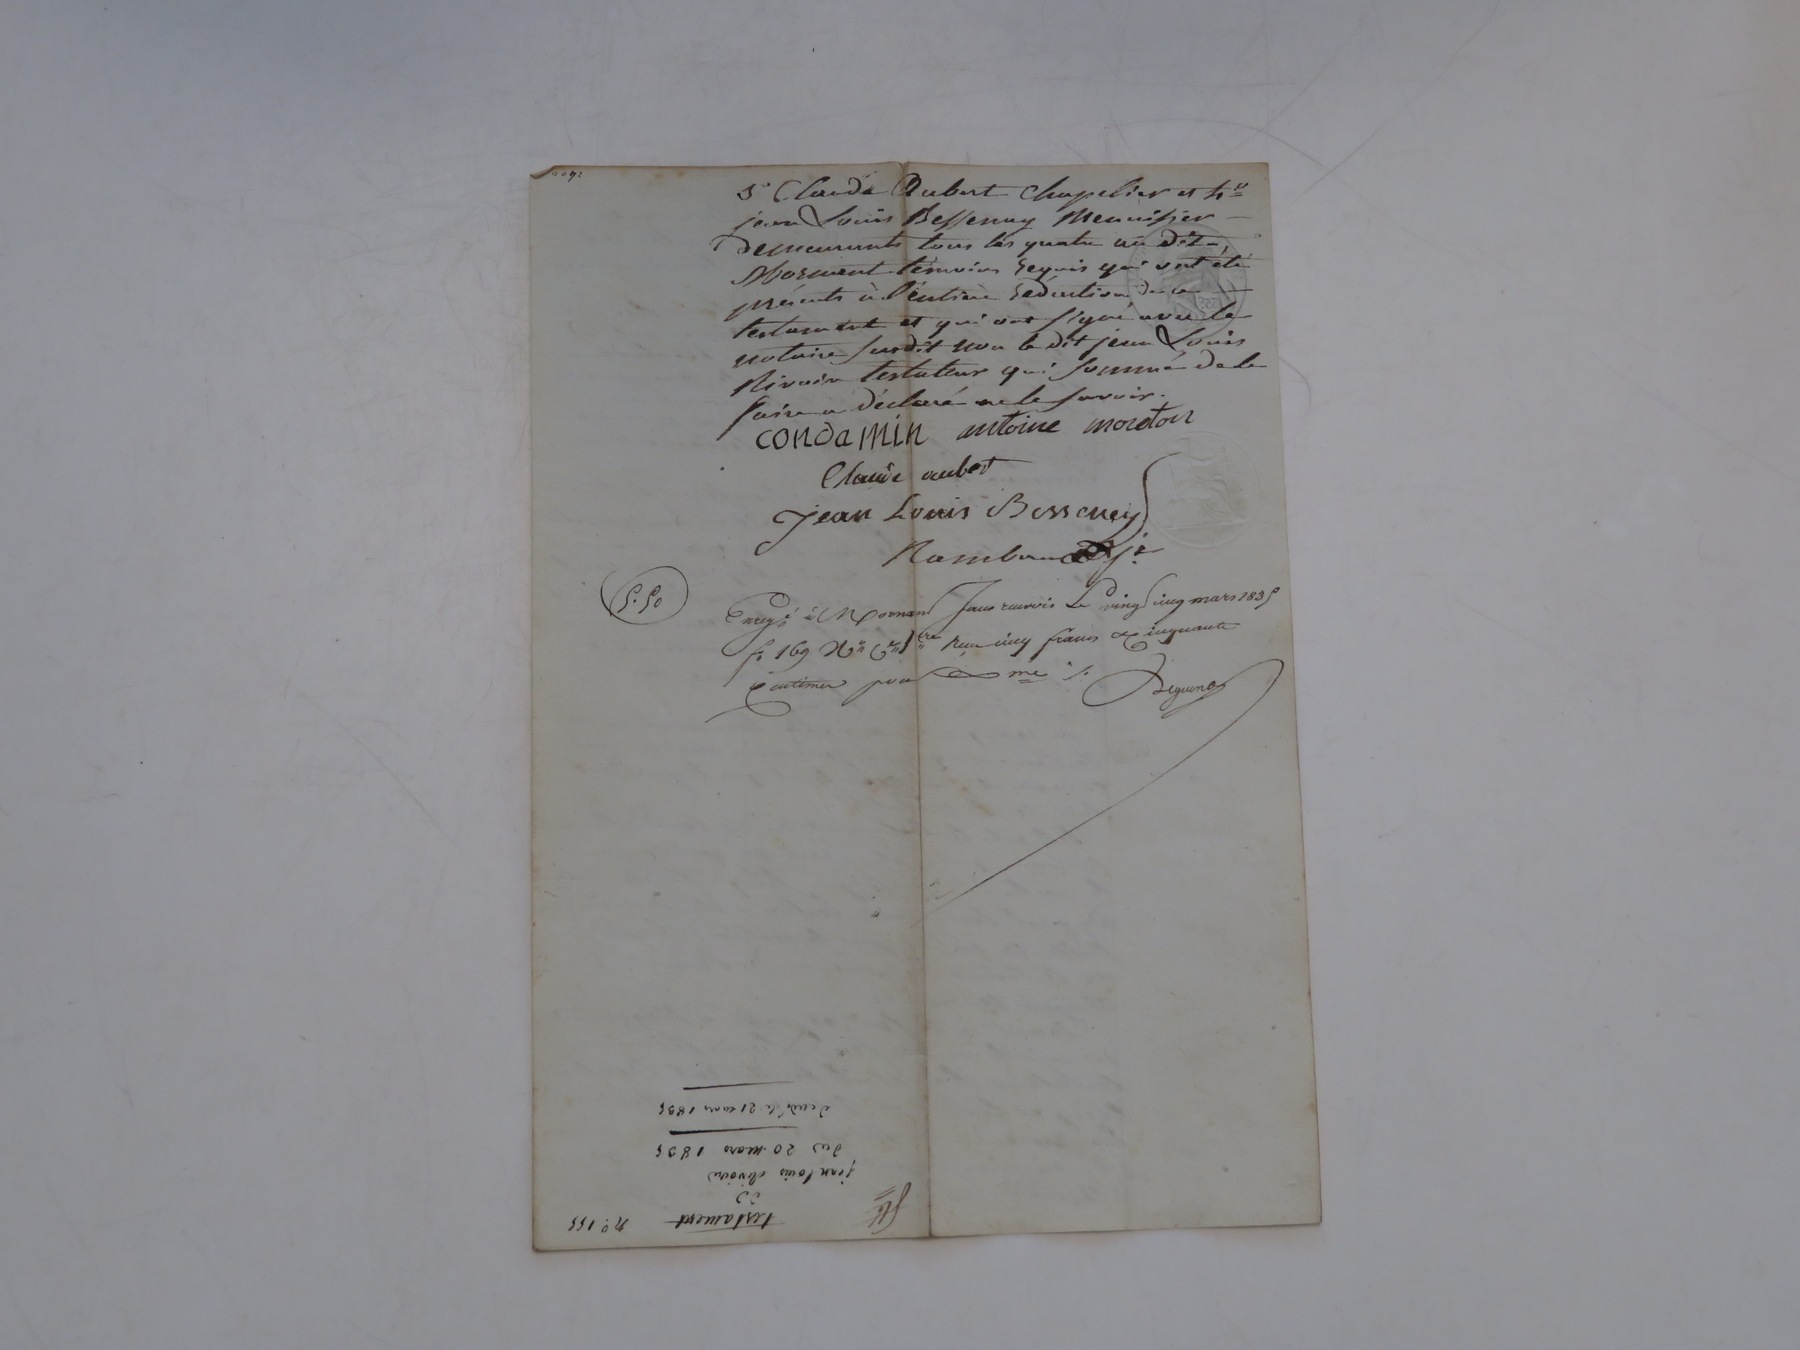 3° Claude Aubert Chapelier et 4°
jean Louis Bessenay Menuisier
demeurants tous les quatre au dit
Mornant témoins requis qui ont été
présents à l'entière rédaction de ce
testament et qui ont signé avec le
notaire susdit non le dit jean Louis
Rivoire testateur qui sommé de le
faire a déclaré ne le savoir.
condamin antoine moreton
Claude aubert
jean Louis Besseney
Rambaud jne
5.50
Enregé à Mornant sans renvois Le vingt cinq mars 1835
fo 169 Ro Ces 1re Reçu cinq francs cinquante
Centimes pour
testament no 155
de
jean louis Rivoire
du 20 mars 1835
21 mars 1835